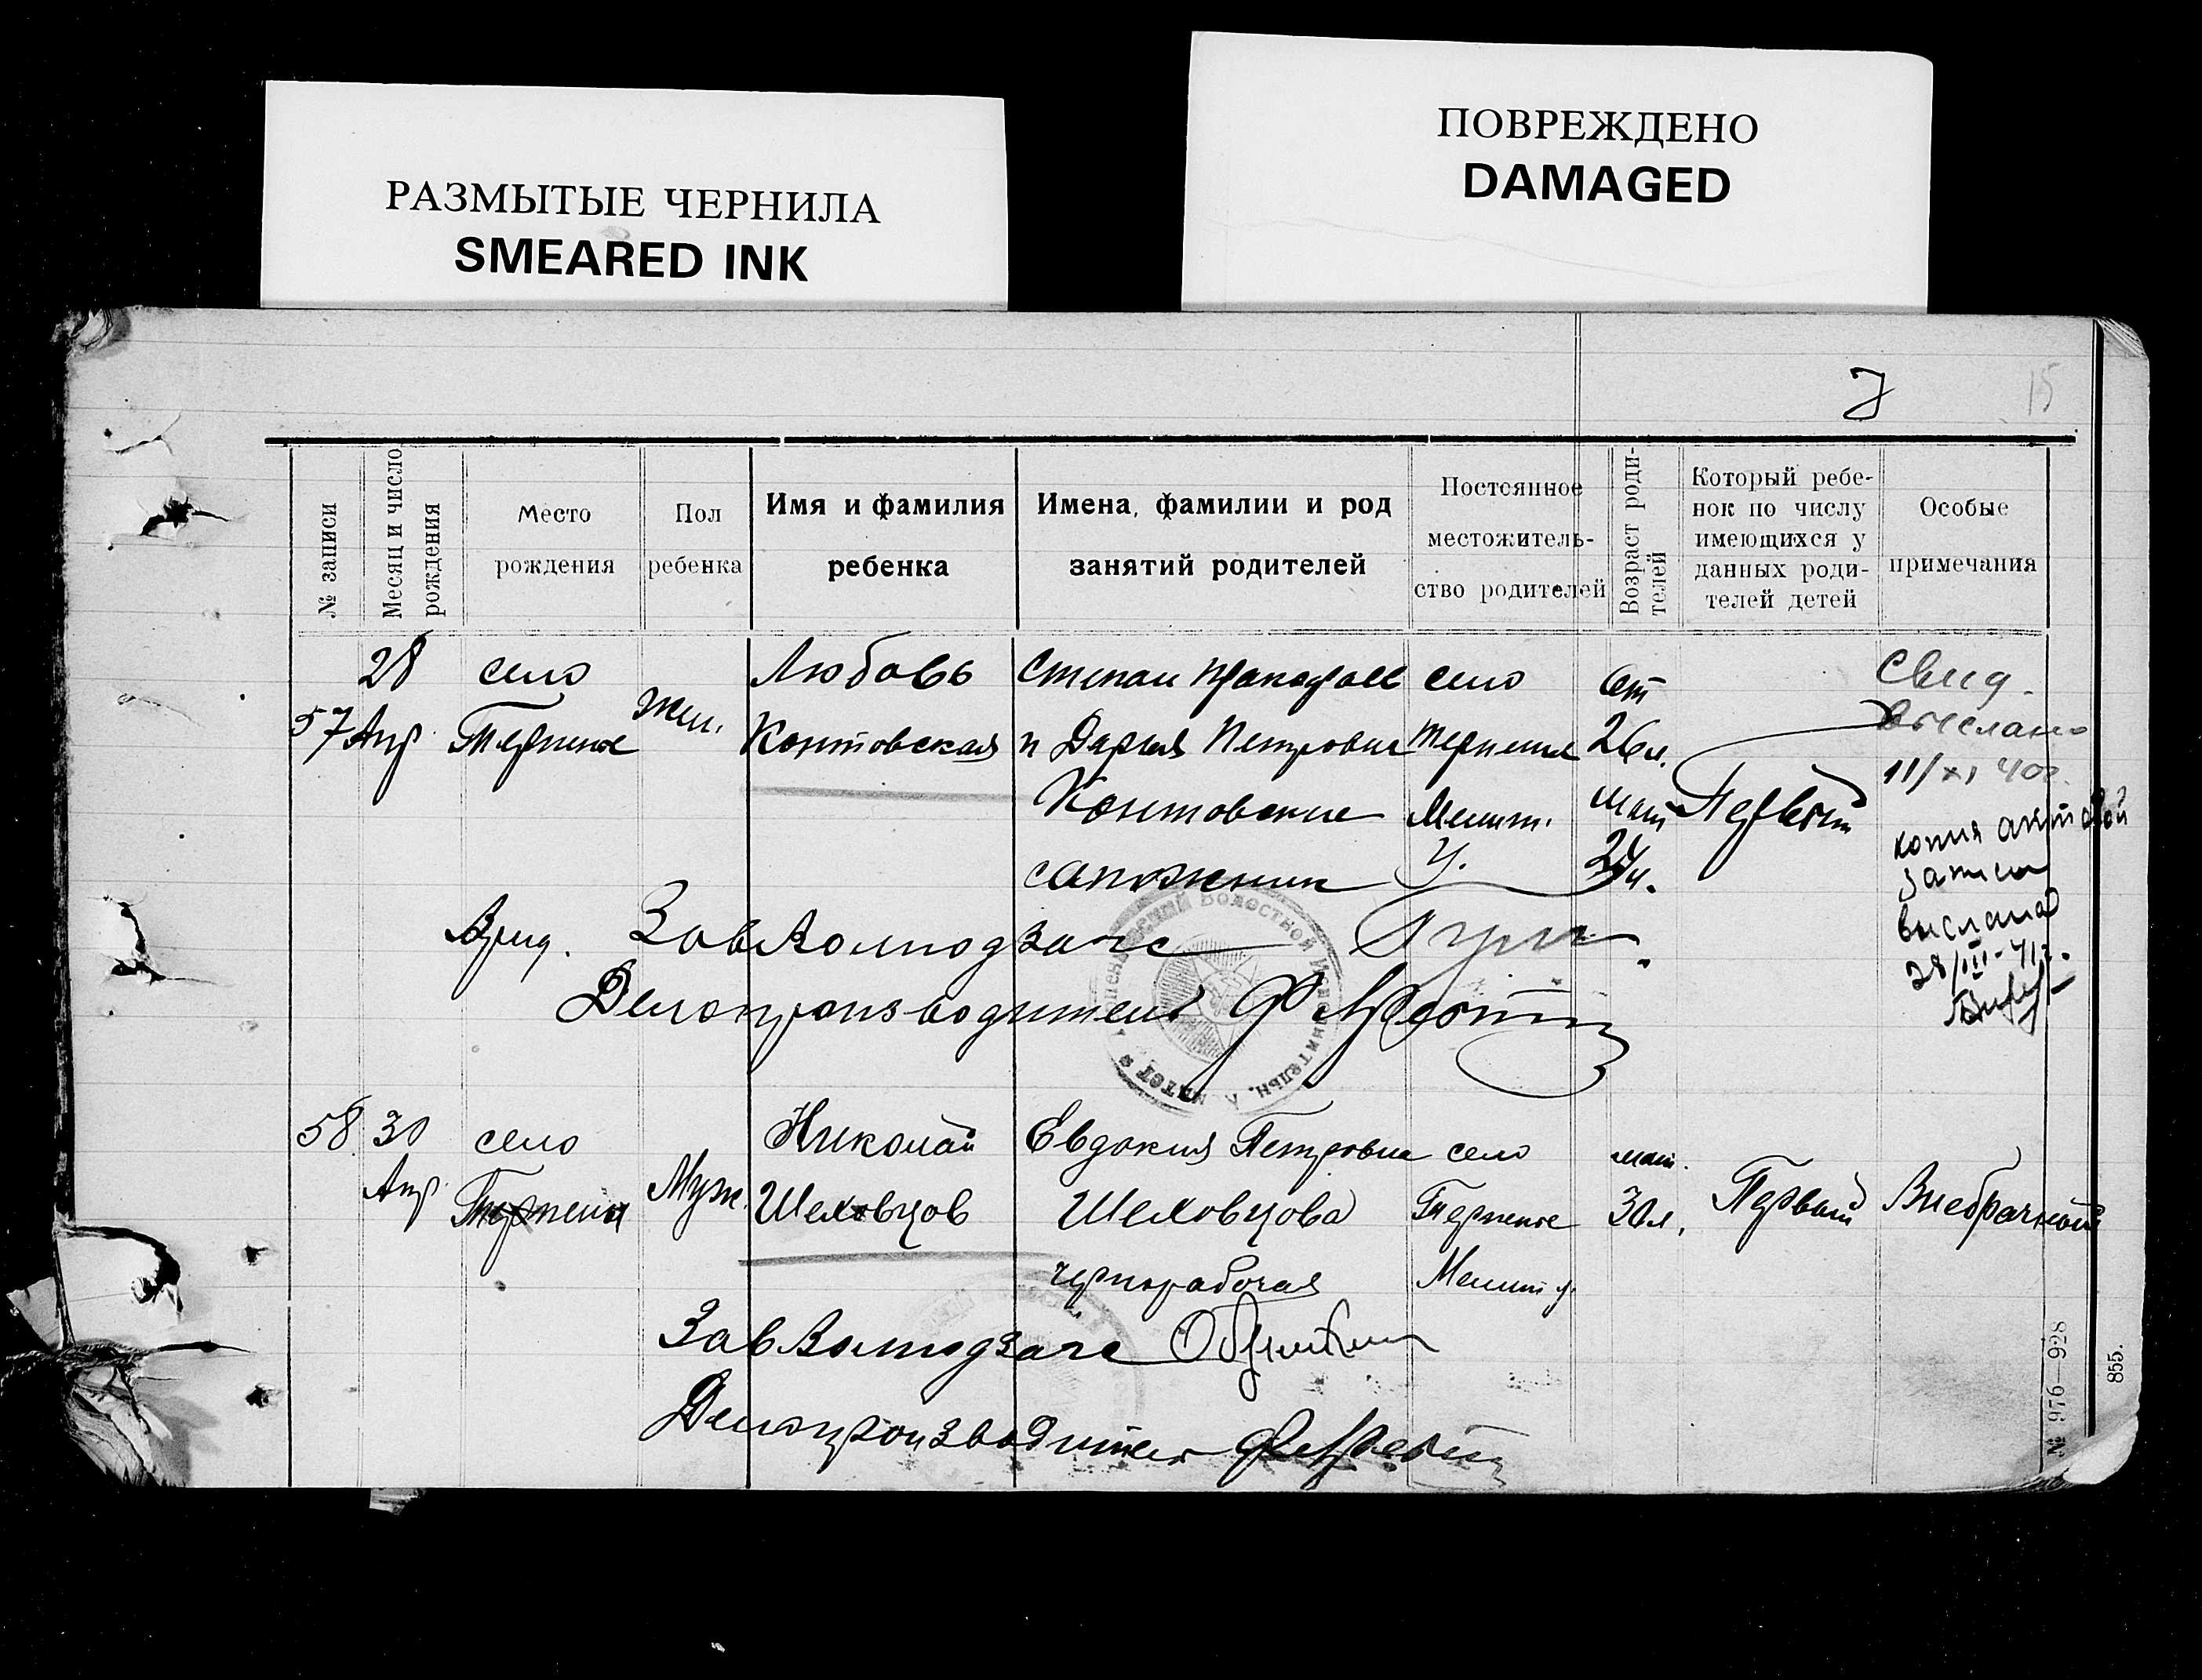 РАЗМЫТЫЕ ЧЕРНИЛА
SMEARED INK
ПОВРЕЖДЕНО
DAMAGED
7
15
№ записи
Месяц и число рождения
Место рождения
Пол ребенка
Имя и фамилия ребенка
Имена, фамилии и род занятий родителей
Постоянное местожительство родителей
Возраст родителей
Который ребенок по числу имеющихся у данных родителей детей
Особые примечания
57
28
Апр
село
Терпение
жен.
Любовь
Контовская
Степан
и Дарья Петровна
Контовские
сапожник
село
Терпение
Мелит.
у.
от
26 л.
мат
Первый
Свид.
выслано
11/XI 40г.
копия актовой
записи
выслана
28/III-41г.
Врид. Зав Волподзагс
Делопроизводитель
58.
30
Апр
село
Терпение
Муж.
Николай
Шеховцов
Евдокия Петровна
Шеховцова
чернорабочая
село
Терпение
Мелит у.
мат.
30 л.
Первый
Внебрачный
Зав Волподзагс
Делопроизводитель
№ 976—928
855.